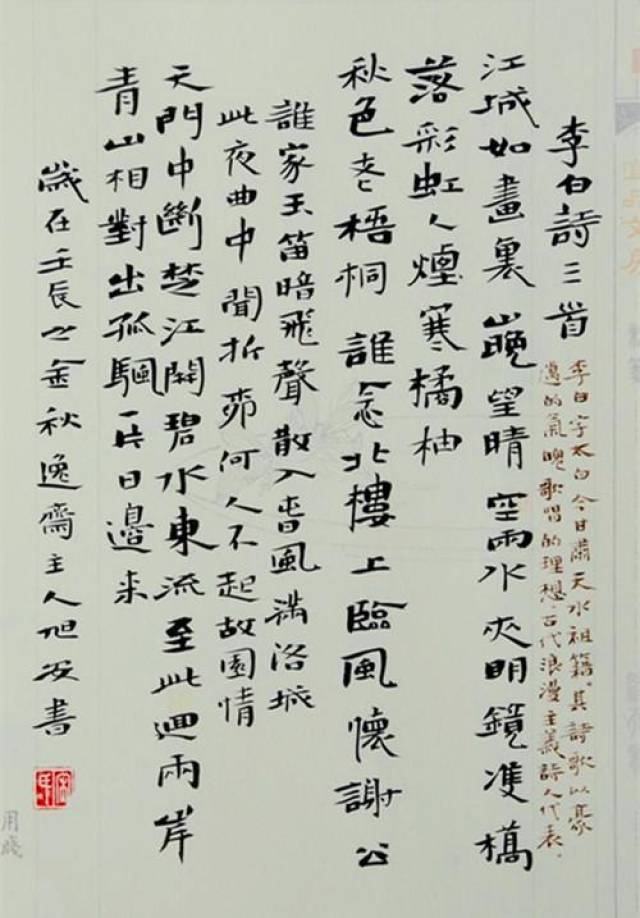 李白詩三首
李白字太白今甘肅天水祖籍。其詩歌以豪
邁的氣魄歌唱的理想，古代浪漫主義詩人代表.
江城如畫裏山晚望晴空雨水夾明鏡雙橋
落彩虹人煙寒橘柚
秋色老梧桐誰念北樓上臨風懷謝公
誰家玉笛暗飛聲散入春風滿洛城
此夜曲中聞折柳何人不起故園情
天門中斷楚江開碧水東流至此迴兩岸
青山相對出孤帆一片日邊来
歲在壬辰之金秋逸齋主人旭安書
用箋